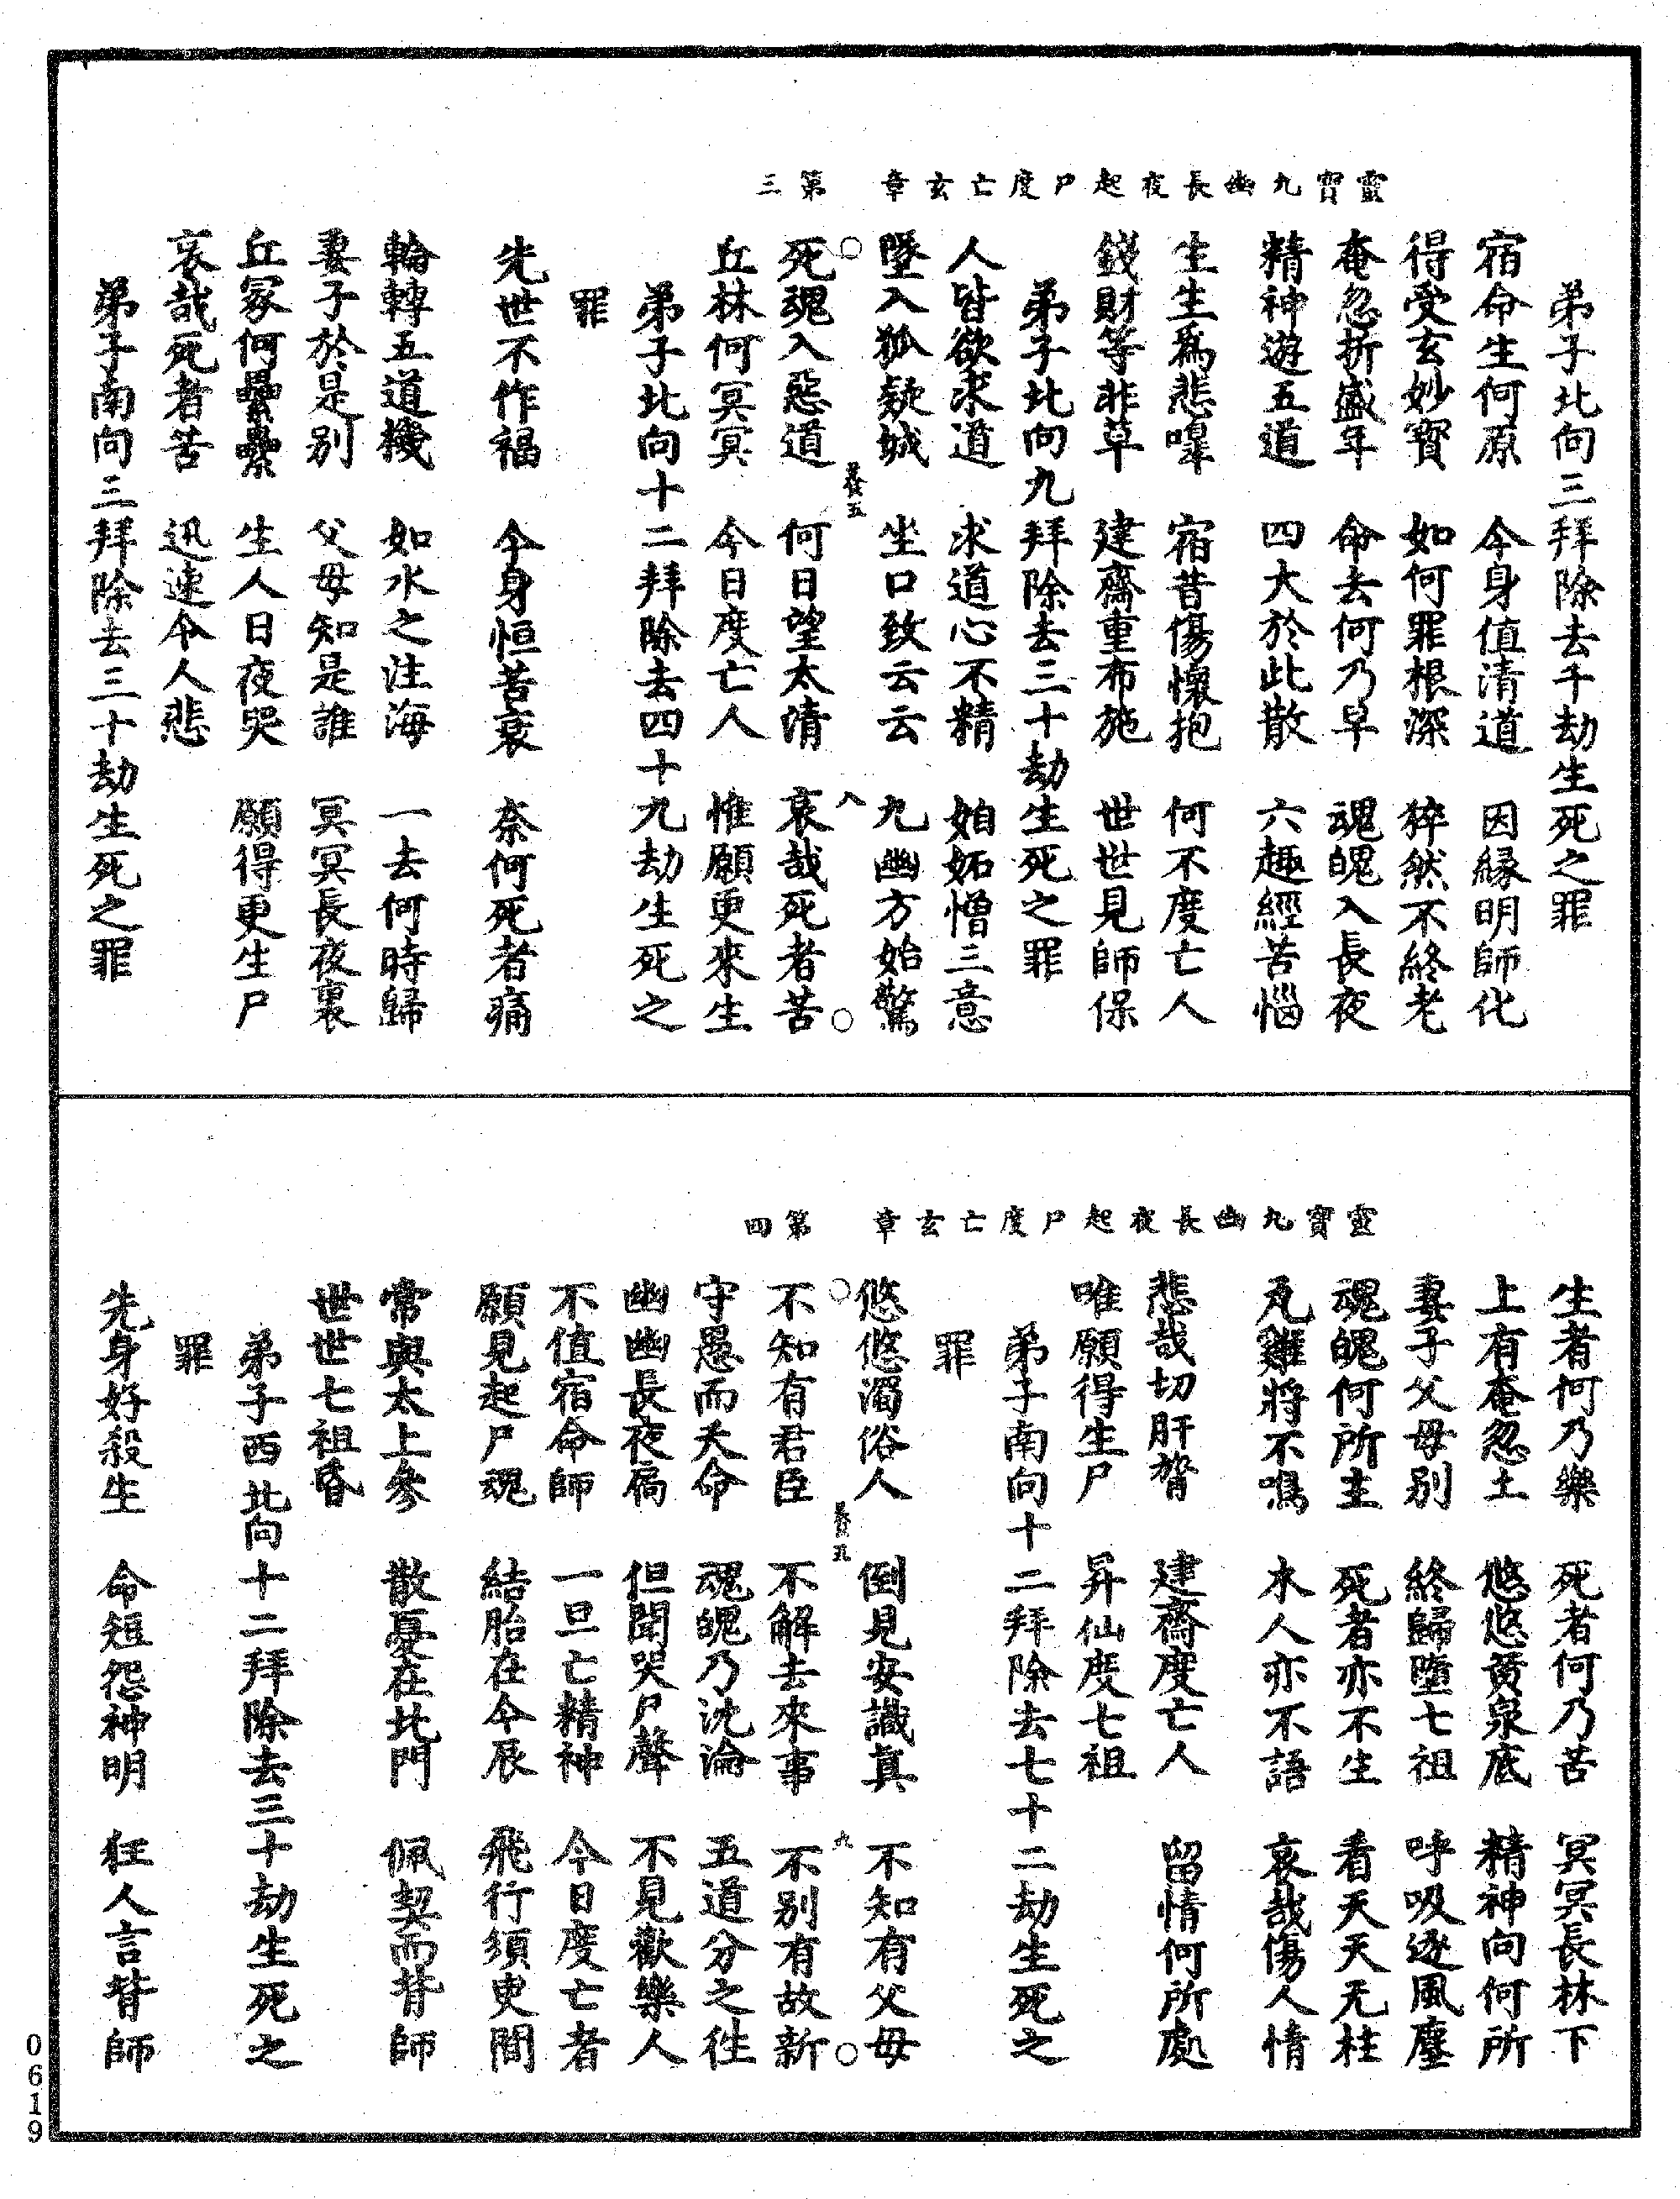 靈寶九幽長夜起尸度亡玄章　第三
弟子北向三拜除去千劫生死之罪
宿命生何原　今身值清道　因緣明師化
得受玄妙寶　如何罪根深　猝然不終老
奄忽折盛年　命去何乃早　魂魄入長夜
精神遊五道　四大於此散　六趣經苦惱
生生為悲嘷　宿昔傷懷抱　何不度亡人
錢財等非草　建齋重布施　世世見師保
弟子北向九拜除去三十劫生死之罪
人皆欲求道　求道心不精　妬憎三意
墜入狐疑城　坐口致云云　九幽方始驚
卷五　八
死魂入惡道　何日望太清　哀哉死者苦
丘林何冥冥　今日度亡人　惟願更來生
弟子北向十二拜除去四十九劫生死之
罪
先世不作福　今身恒苦衰　奈何死者痛
輪轉五道機　如水之注海　一去何時歸
妻子於是別　父母知是誰　冥冥長夜裏
丘冢何纍纍　生人日夜哭　願得更生尸
哀哉死者苦　迅速令人悲
弟子南向三拜除去三十劫生死之罪
靈寶九幽長夜起尸度亡玄章　第四
生者何乃樂　死者何乃苦　冥冥長林下
上有奄忽土　悠悠黃泉底　精神向何所
妻子父母別　終歸墮七祖　呼吸逐風塵
魂魄何所主　死者亦不生　看天天无柱
瓦雞將不鳴　木人亦不語　哀哉傷人情
悲哉切肝膂　建齋度亡人　留情何所處
唯願得生尸　昇仙度七祖
弟子南向十二拜除去七十二劫生死之
罪
悠悠濁俗人　倒見安識真　不知有父母
卷五　九
不知有君臣　不解去來事　不別有故新
守愚而夭命　魂魄乃沈淪　五道分之徃
幽幽長夜扃　但聞哭尸聲　不見歡樂人
不值宿命師　一旦亡精神　今日度亡者
願見起尸魂　結胎在今辰　飛行須臾間
常與太上參　散憂在北門　佩契而背師
世世七祖昏
弟子西北向十二拜除去三十劫生死之
罪
先身好殺生　命短怨神明　狂人言背師
0619